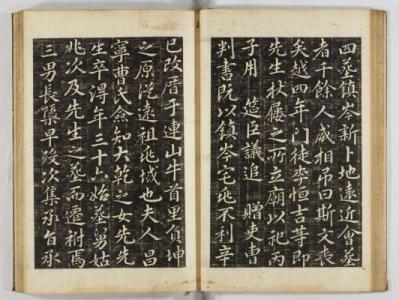 四葬鎮岑新卜地遠近會葬
者千餘人咸相吊曰斯文喪
矣越四年門徒李恒吉等即
先生杖屨之所立廟以祀丙
子用 筵臣議追 贈吏曹
判書既以鎮岑宅兆不利辛
巳改厝于連山牛首里負坤
之原從遠祖兆域也夫人昌
寧曹氏僉知大乾之女先先
生卒得年三十六始葬舅姑
兆次及先生之葬而遷祔焉
三男長檃早歿次集承旨承